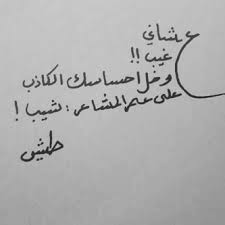 عشاني
غيب !!
وخل احساسك الكاذب
على عمر المشاعر : شيب !
طيش